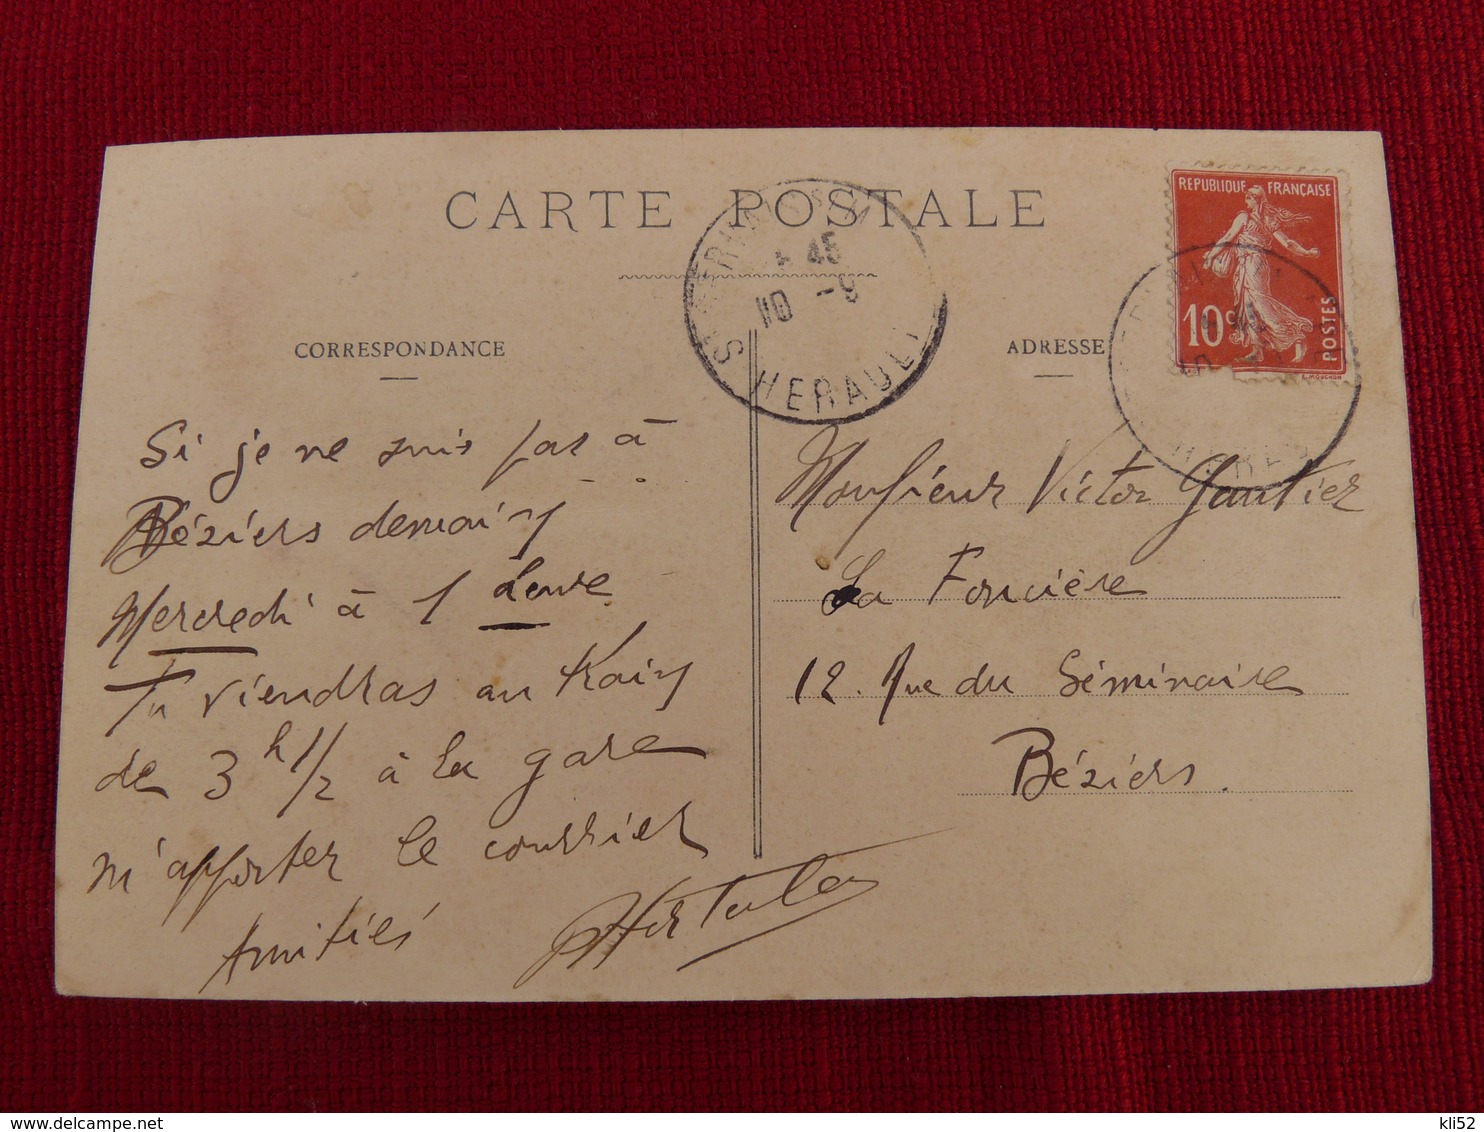 CARTE POSTALE
CORRESPONDANCE
ADRESSE
REPUBLIQUE FRANÇAISE
10c
POSTES
L. MOUCHON
45
10 -9
HERAULT
Si je ne suis pas à
Béziers demain
Mercredi à 1 heure
Tu viendras au train
de 3 h 1/2 à la gare
m'apporter le courrier
Amitiés
Monsieur Victor Gautier
La Foncière
12. Rue du Séminaire
Béziers.
kli52
delcampe.net